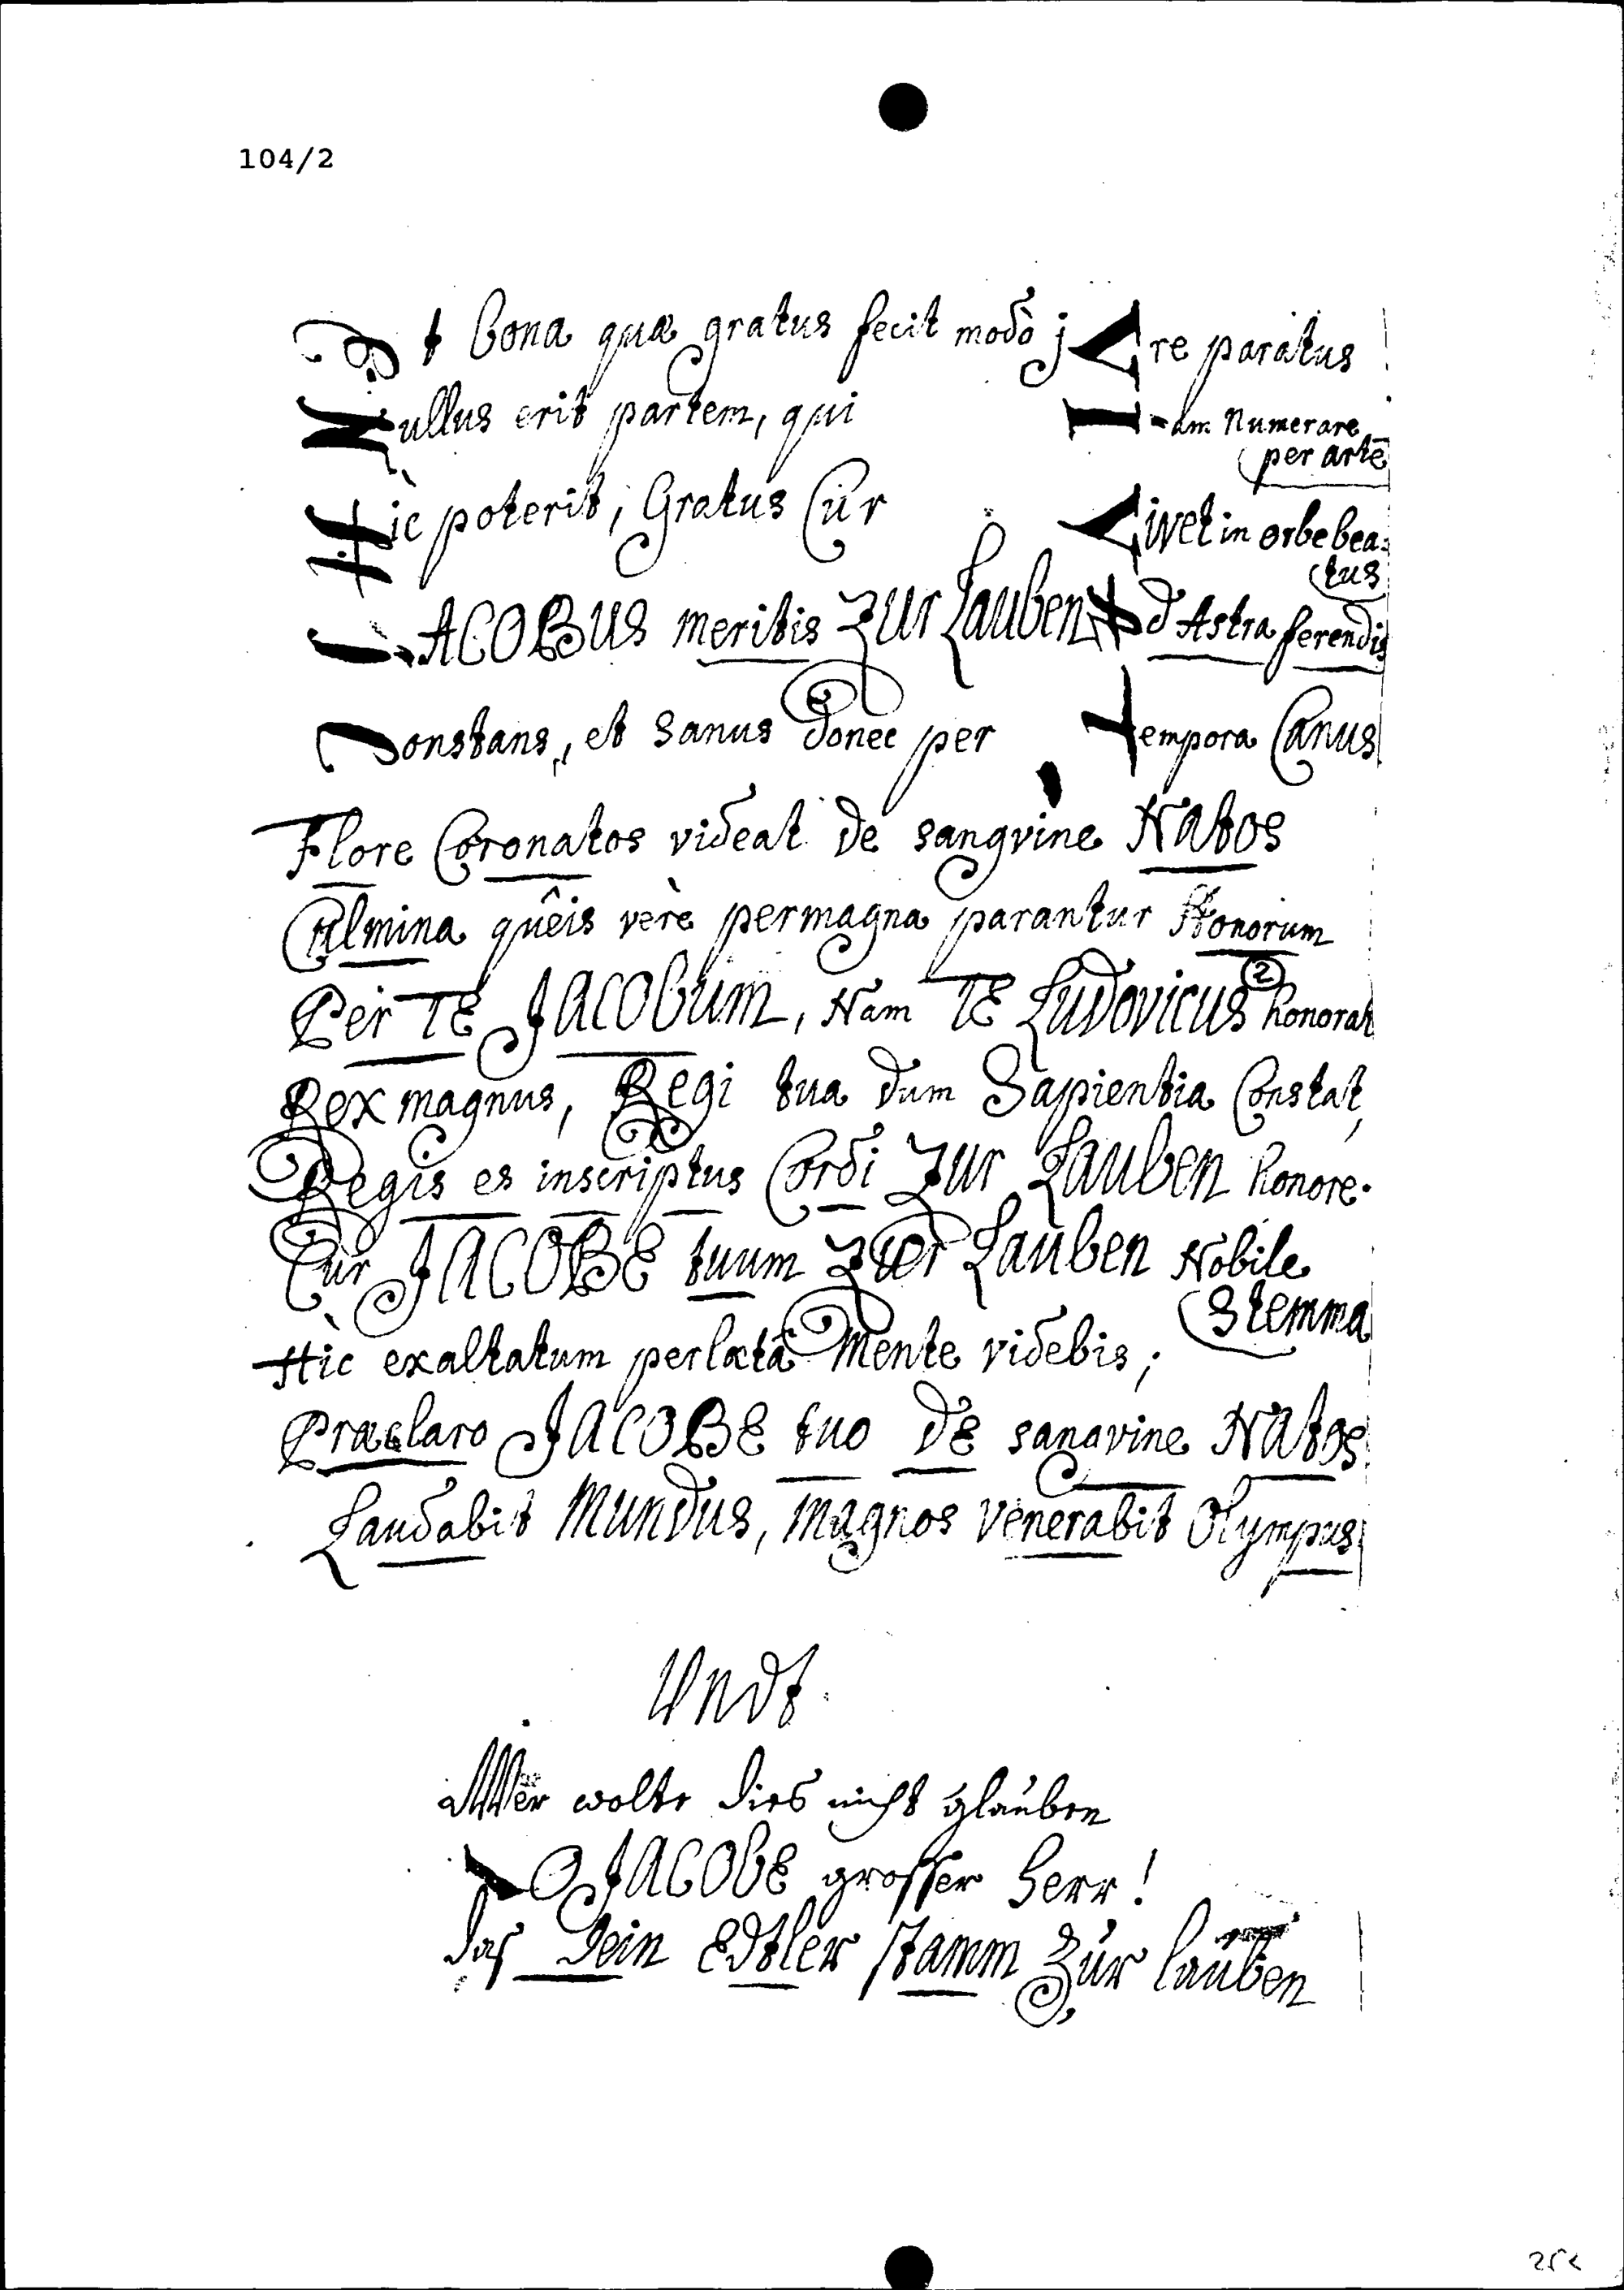 104/2
Et bona quæ gratus fecit modò jVre paratus
Nullus erit partem, qui Iam Numerare
per artē
Hìc poterit, Gratus Cur Vivet in orbe bea:
tus
IACOBUS meritis Zur Lauben Ad Astra ferendis
Constans, et Sanus donec per tempora Canus
Flore Coronatos videat de sangvine Natos
Culmina quêis verè permagna parantur Honorum
Per TE JACObum, Nam TE Ludovicus ② honorat
Rex magnus, Regi tua dum Sapientia Constat,
Regis es inscriptus Cordi Zur Lauben honore.
Cur JACOBE tuum Zur Lauben Nobile
Stemma
Hìc exaltatum perlætâ Mente videbis;
Præclaro JACOBE tuo DE sangvine Natos
Laudabit Mundus, magnos venerabit Olympus
Undt
Wer wolte dies nicht glauben
O JACObE grosser Herr!
das Dein Edtler stamm Zur lauben